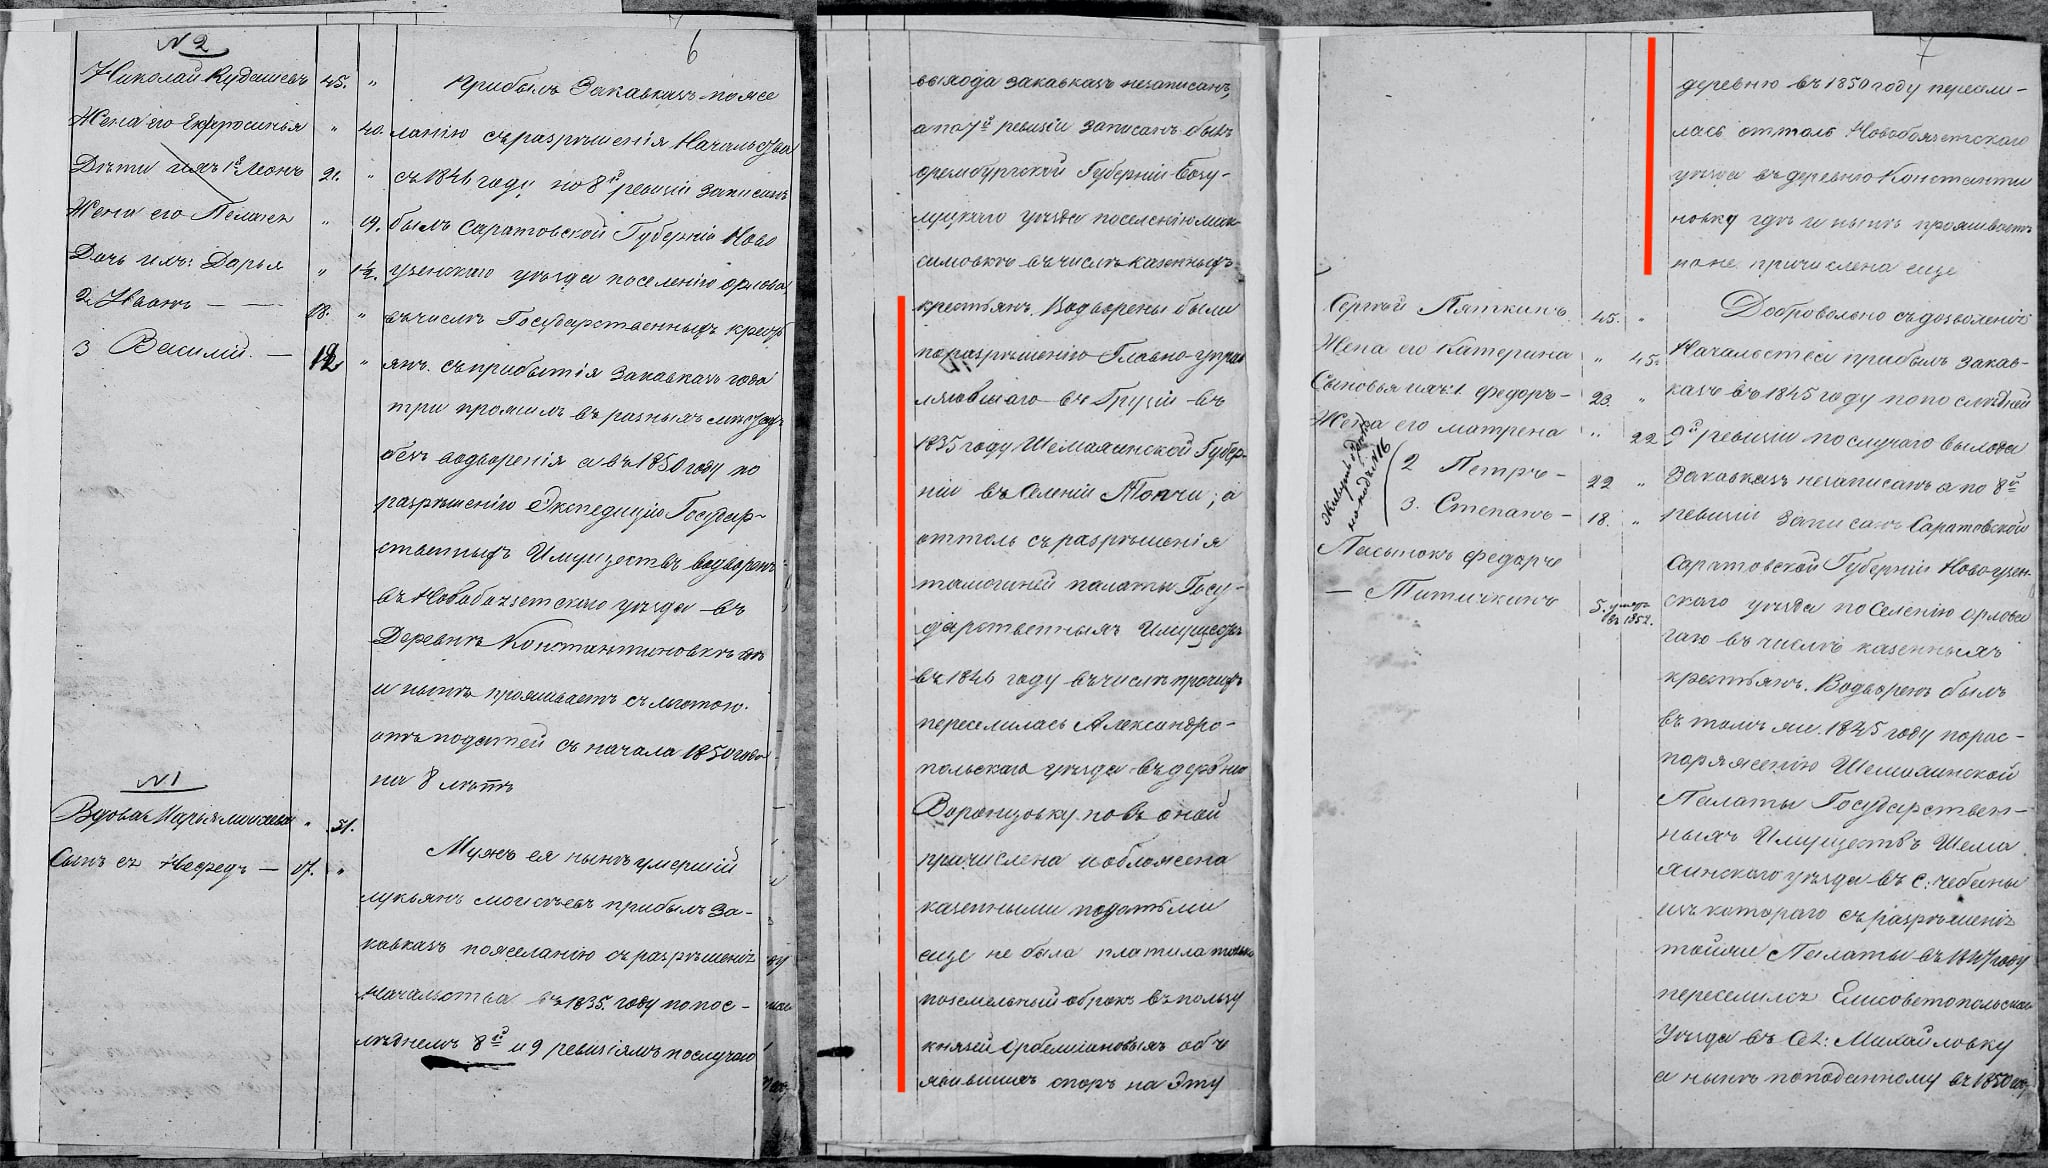 6
N 2
Николай Кудашевъ 45. "
Жена его Ефросинья " 40.
Дѣти ихъ 1й Леонъ 21. "
Жена его Пелагея " 19.
Дочь ихъ: Дарья " 1½.
2 Иванъ — — 18. "
3 Василій. — 12 "
Прибылъ Закавказъ по же
ланію съ разрѣшенія Начальства
съ 1846 году по 8й ревизіи записанъ
былъ Саратовской Губерніи Ново
узенскаго уѣзда поселенію Орлова
въ числѣ Государственныхъ крест
янъ. съ прибытія Закавказъ года
три прожилъ въ разныхъ мѣстахъ
безъ водворенія а въ 1850 году по
разрѣшенію Экспедиціи Государ-
ственныхъ Имуществъ водворенъ
въ Новобаязетскаго уѣзда въ
Деревнѣ Константиновкѣ гдѣ
и нынѣ проживаетъ съ льготою
отъ податей съ начала 1850 года
на 8 лѣтъ
N 1
Вдова Марья " 51.
Сынъ ея Нефедъ — 17. "
Мужъ ея нынѣ умершій
Лукьянъ Моисѣевъ прибылъ За-
кавказъ по желанію съ разрѣшенія
начальства въ 1835. году по пос-
лѣднемъ 8й и 9 ревизіямъ по случаю
выхода Закавказъ незаписанъ,
а по 7й ревизіи записанъ былъ
Оренбургской Губерніи Бозу-
лукскаго уѣзда поселенію Мак-
симовкѣ въ числѣ казенныхъ
крестьянъ. Водворены были
по разрѣшенію Главно-управ
лявшаго въ Грузіи въ
1835 году Шемахинской Губер-
ніи въ Селеніи Топчи; а
оттоль съ разрѣшенія
тамошней палаты Госу-
дарственныхъ Имуществъ
въ 1846 году въ числѣ прочихъ
переселилась Александро-
польскаго уѣзда въ деревню
Воронцовку но въ оной
причислена и обложена
казенными податьми
еще не была платила только
поземельный оброкъ въ пользу
князей Орбеліановыхъ объ
явившихъ споръ на эту
7
деревню въ 1850 году пересели-
лась оттоль Новобаязетскаго
уѣзда въ деревню Константи
новку гдѣ и нынѣ проживаетъ
но не причислена еще
Сергѣй Пяткинъ. 45. "
Жена его Катерина " 45.
Сыновья ихъ: 1. Федоръ — 23. "
Жена его Матрена " 22
2 Петръ — 22 "
3. Степанъ — 18. "
Пасынокъ Федоръ
— Титичкинъ 5. умеръ
въ 1852.
Добровольно съ дозволенія
Начальства прибылъ Закав-
казъ въ 1845 году по послѣдней
9й ревизіи по случаю выхода
Закавказъ незаписанъ а по 8й
ревизіи записанъ Саратовской
Саратовской Губерніи Новоузен-
скаго уѣзда по Селенію Орлова
гаю въ числѣ казенныхъ
крестьянъ. Водворенъ былъ
въ томъ же. 1845 году по рас-
поряженію Шемахинской
Палаты Государствен-
ныхъ Имуществъ Шема
хинскаго уѣзда въ с:
изъ котораго съ разрѣшенія
тойже Палаты въ 1847 году
переселился Елисоветопольскаго
Уѣзда въ Сел: Михайловку
а нынѣ по поданному въ 1850 году